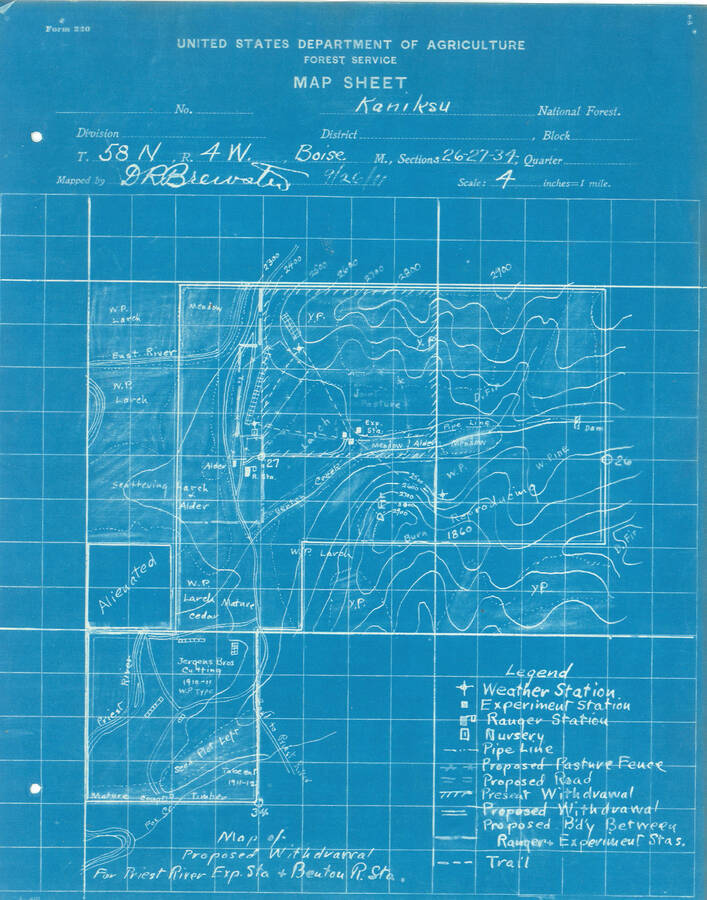 Form 220
UNITED STATES DEPARTMENT OF AGRICULTURE
FOREST SERVICE
MAP SHEET
No. Kaniksu National Forest.
Division District , Block
T. 58 N R. 4 W. , Boise M., Sections 26-27-34, Quarter
Mapped by D R Brewster 9/26/11 Scale: 4 inches=1 mile.
2300
2400
2700
2800
2900
W.P.
Larch
Meadow
Y.P.
Y.P.
East River
W.P.
Larch
Pasture
D. Fir
Larch
Exp.
Sta.
Pipe Line
Dam
Meadow Alder Meadow
27
Alder
R. Sta.
26
W.P.
W. Pine
Scattering Larch
&
Alder
Benton Creek
D. Fir
Reproducing
Burn 1860
D. Fir
W.P. Larch
Alienated
W.P.
Larch Mature
Cedar
Y.P.
Y.P.
Jergens Bros
Cutting
1910-11
W.P. Type
Priest River
Road to Priest River
Seed Plot Left
To be cut
1911-12
Mature Timber
34
Legend
Weather Station
Experiment Station
Ranger Station
Nursery
Pipe Line
Proposed Pasture Fence
Proposed Road
Present Withdrawal
Proposed Withdrawal
Proposed Bdy Between
Ranger + Experiment Stas.
Trail
Map of
Proposed Withdrawal
For Priest River Exp. Sta + Benton R. Sta.